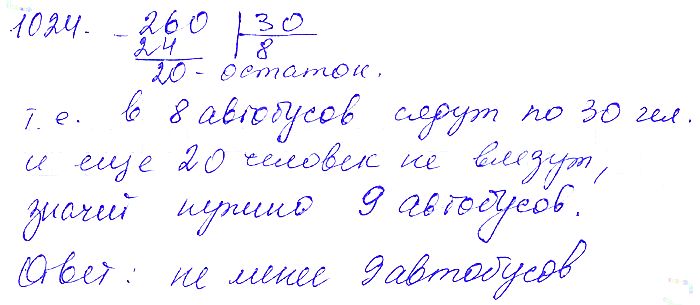 1024. -260 | 30
24 8
20 - остаток.
т.е. в 8 автобусов сядут по 30 чел.
и еще 20 человек не влезут,
значит нужно 9 автобусов.
Ответ: не менее 9 автобусов